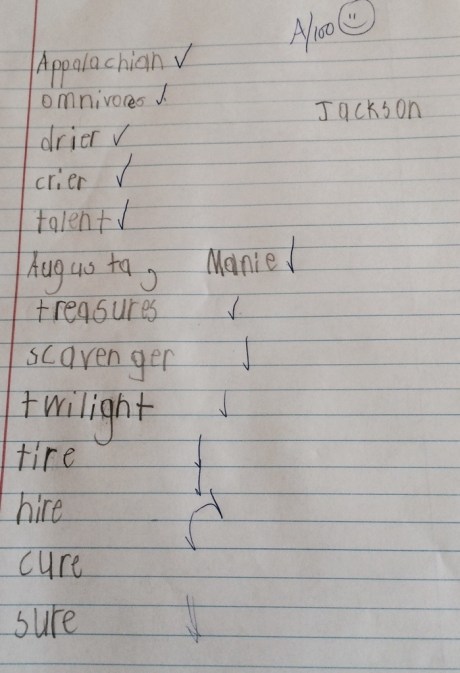 A/100
Appalachian
omnivores
Jackson
drier
crier
talent
Augusta, Manie
treasures
scavenger
twilight
tire
hire
cure
sure